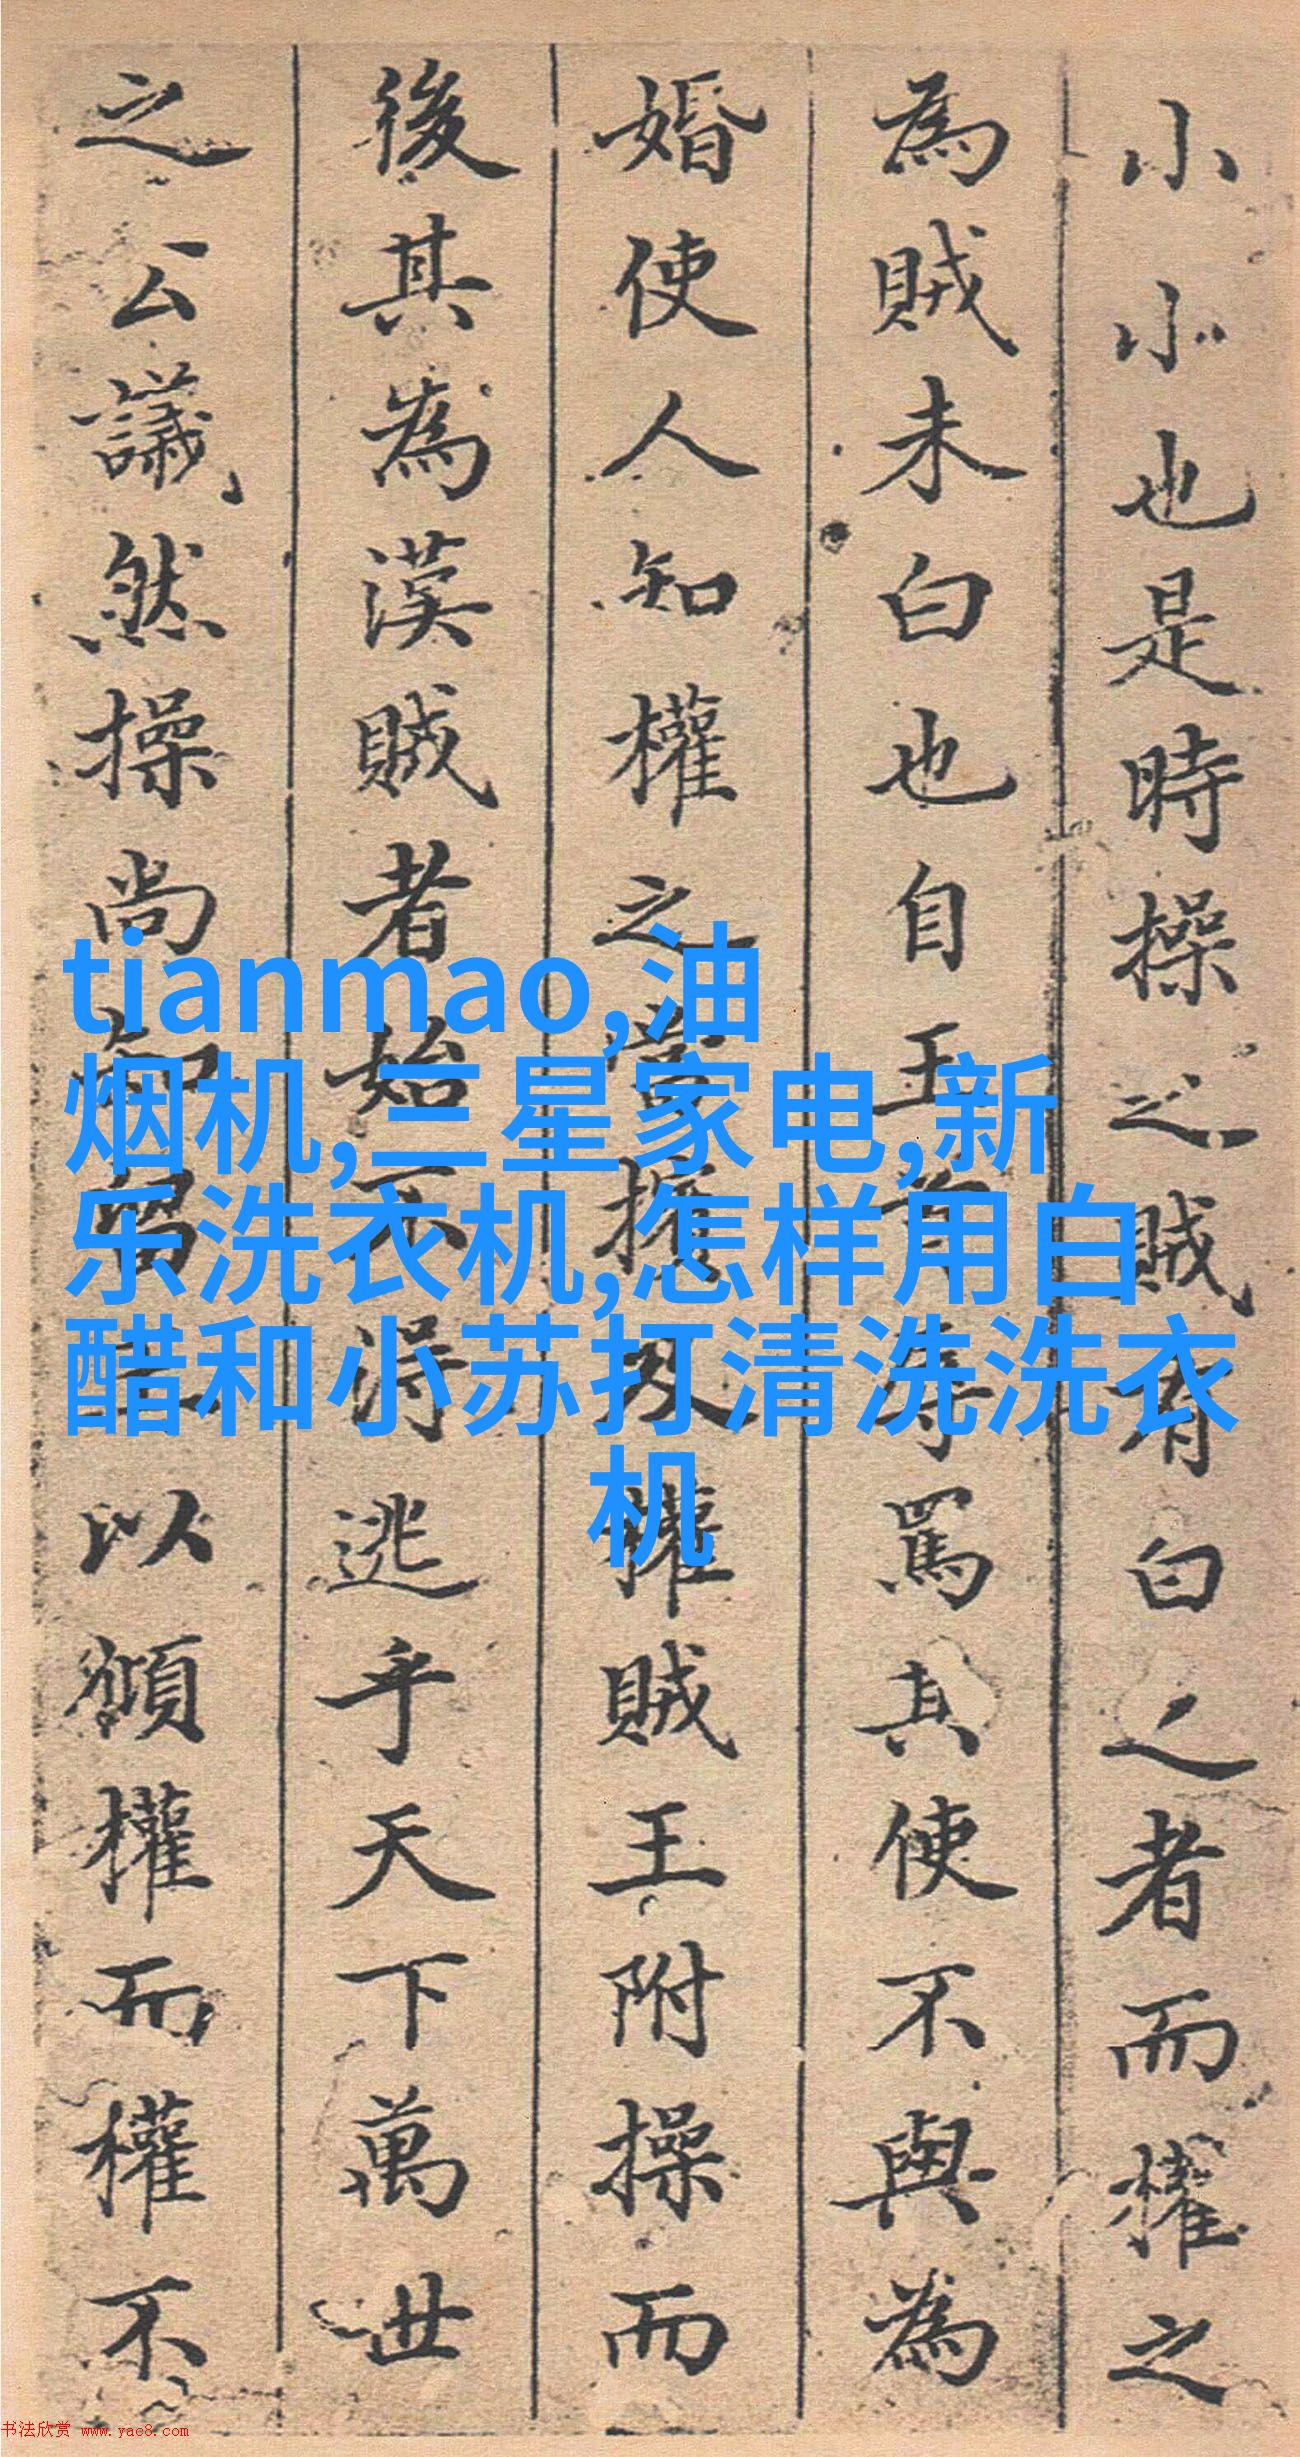 小小也是時操之賊有白之者而權之
為賊未白也自王辱罵其使不與為
婚使人知權之當權賊王附操而
後其為漢賊者始不得逃乎天下萬世
之公議然操尚知以權而權不
tianmao,油
烟机,三星家电,新
乐洗衣机,怎样用白
醋和小苏打清洗洗衣
机
书法欣赏 www.yac8.com